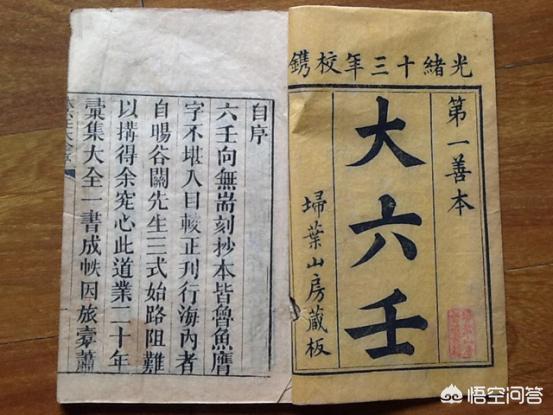 光緒十三年校鐫
第一善本
大六壬
埽葉山房藏板
自序
六壬向無耑刻抄本皆魯魚膺
字不堪入目較正刊行海內者
自暘谷關先生三式始路阻難
以搆得余究心此道業二十年
彚集大全一書成帙因旅橐蕭
悟空问答